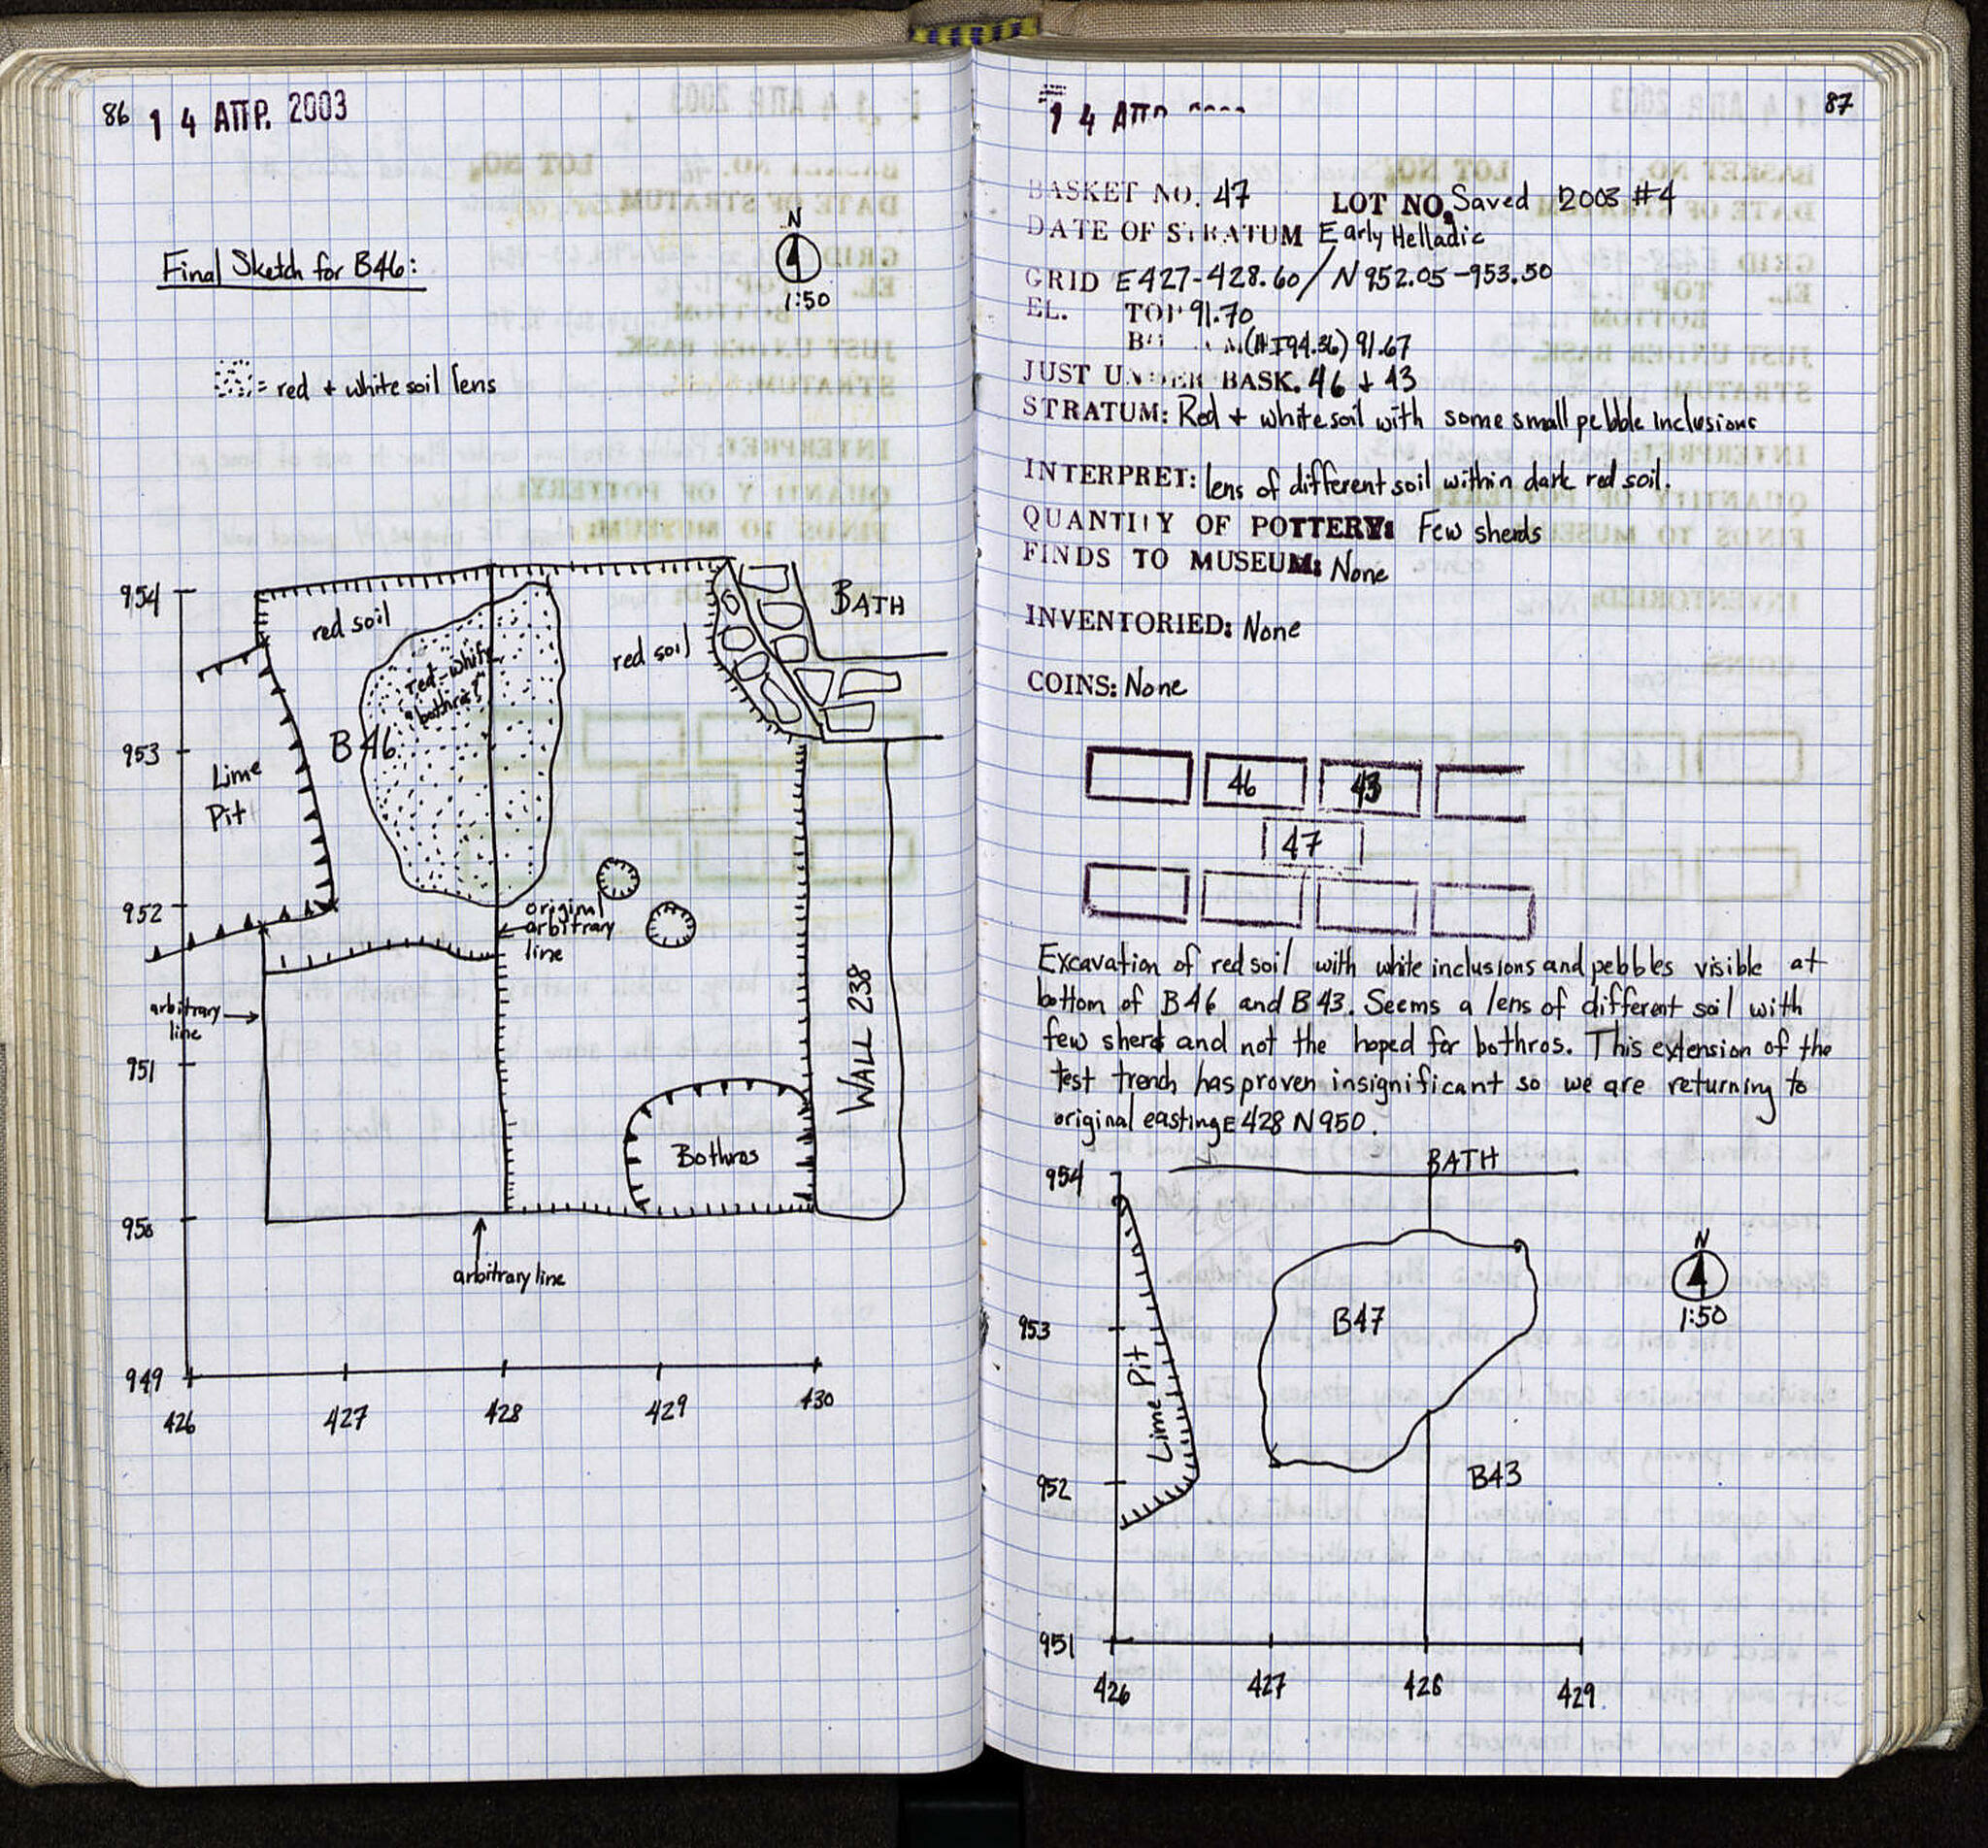 86 14 ΑΠΡ. 2003
N
1:50
Final Sketch for B46:
= red + white soil lens
954
red soil
red-white
"bothros?"
red soil
BATH
B46
953
Lime
Pit
952
original
arbitrary
line
arbitrary
line
951
WALL 238
Bothros
950
arbitrary line
949
426 427 428 429 430
14 ΑΠΡ
87
BASKET NO. 47 LOT NO. Saved 2003 #4
DATE OF STRATUM Early Helladic
GRID E427-428.60/N952.05-953.50
EL. TOP 91.70
(HI 94.36) 91.67
JUST UNDER BASK. 46 + 43
STRATUM: Red + white soil with some small pebble inclusions
INTERPRET: lens of different soil within dark red soil.
QUANTITY OF POTTERY: Few sherds
FINDS TO MUSEUM: None
INVENTORIED: None
COINS: None
46 43
47
Excavation of red soil with white inclusions and pebbles visible at
bottom of B46 and B43. Seems a lens of different soil with
few sherd and not the hoped for bothros. This extension of the
test trench has proven insignificant so we are returning to
original easting E428 N950.
954
BATH
N
1:50
B47
953
Lime Pit
952
B43
951
426 427 428 429